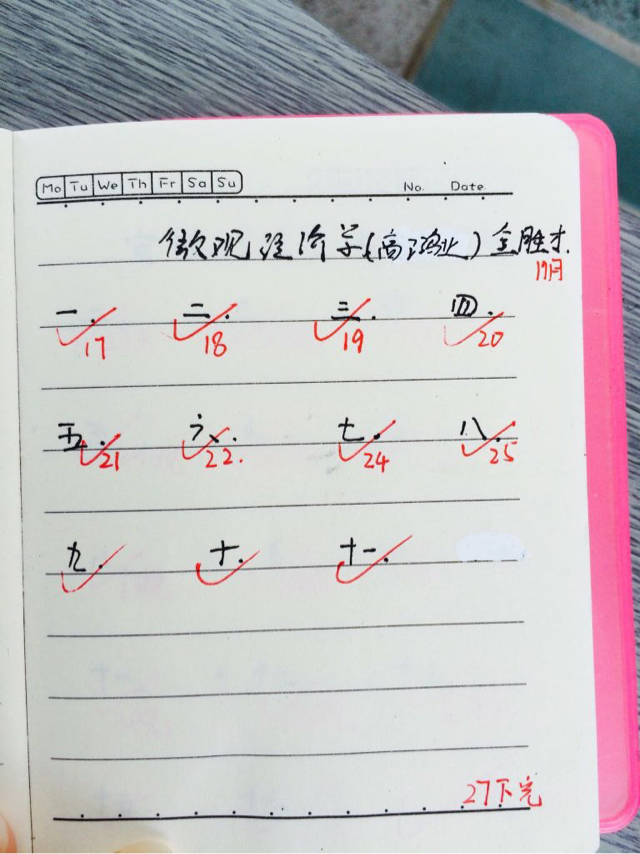 Mo Tu We Th Fr Sa Su
No. Date
微观经济学(高鸿业)金胜才.
一. 二. 三. 四.
17 18 19 20
五. 六. 七. 八.
21 22. 24 25
九. 十. 十一.
27下完